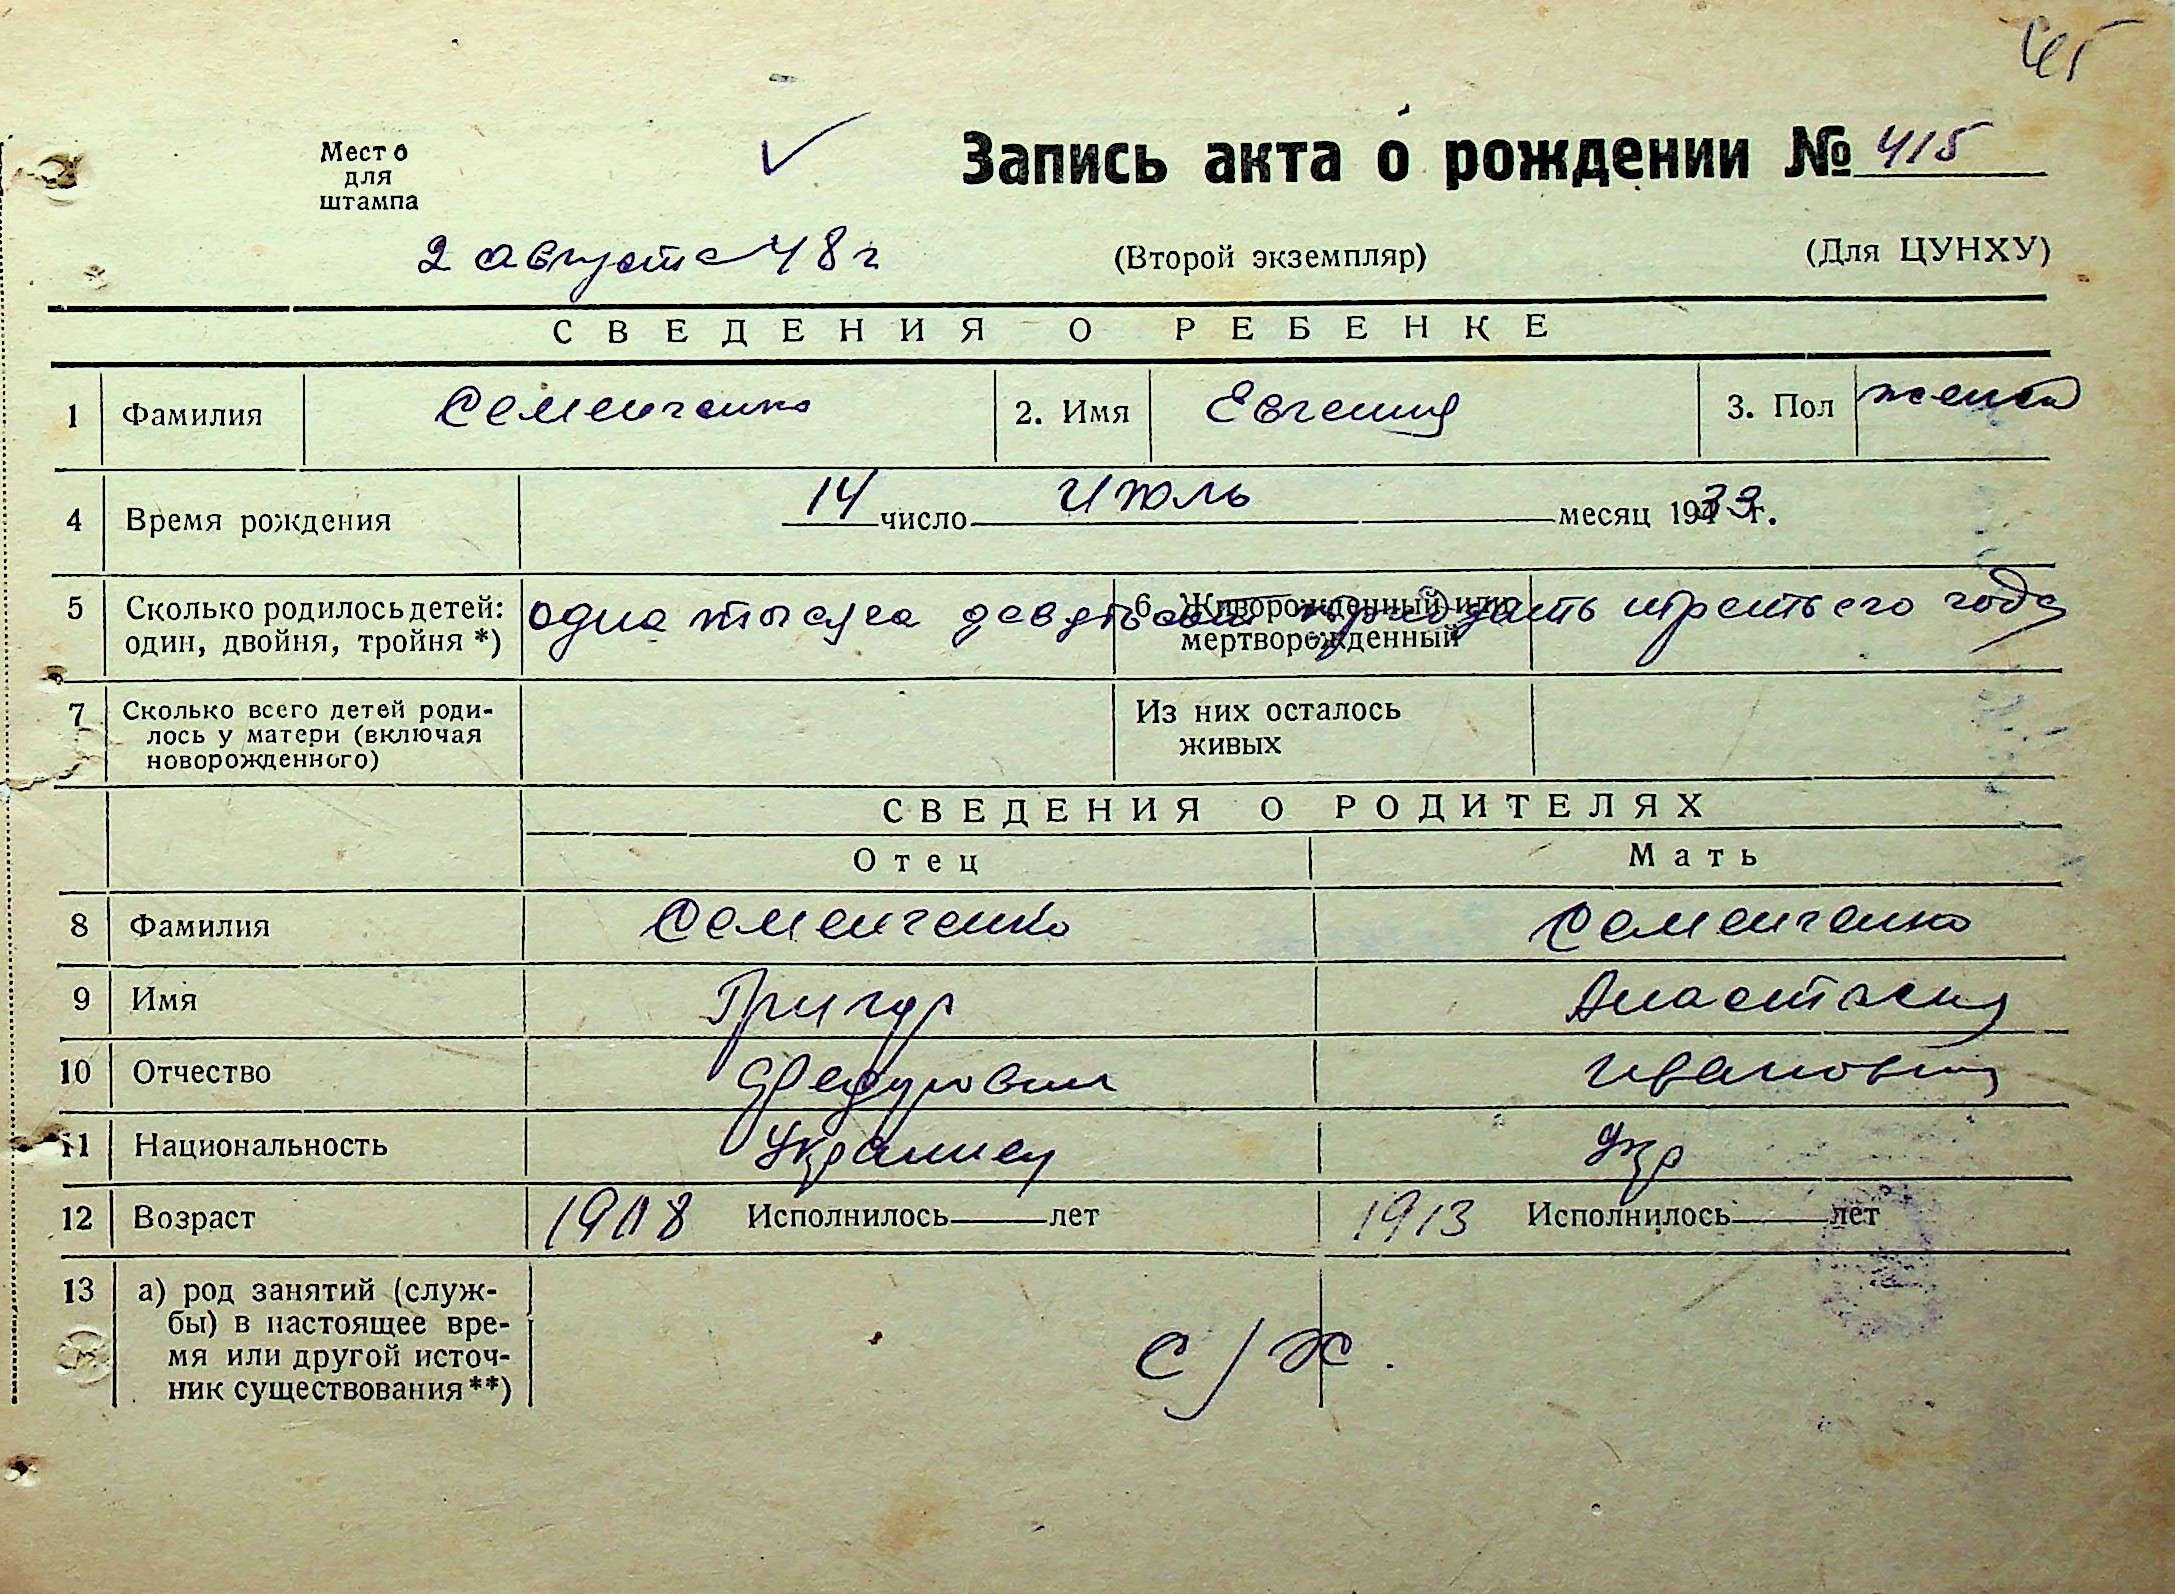 45
Место
для
штампа
Запись акта о рождении № 415
2 августа 48 г
(Второй экземпляр)
(Для ЦУНХУ)
СВЕДЕНИЯ О РЕБЕНКЕ
1 Фамилия Семенченко 2. Имя Евгения 3. Пол женск
4 Время рождения 14 число Июль месяц 1933 г.
5 Сколько родилось детей: один, двойня, тройня *) 6. Живорожденный или мертворожденный
одна тысяча девятьсот тридцать третьего года
7 Сколько всего детей роди-
лось у матери (включая
новорожденного)
Из них осталось
живых
СВЕДЕНИЯ О РОДИТЕЛЯХ
Отец Мать
8 Фамилия Семенченко Семенченко
9 Имя Григор Анастасия
10 Отчество Федурович Ивановна
11 Национальность Украинец Укр
12 Возраст 1908 Исполнилось лет 1913 Исполнилось лет
13 а) род занятий (служ-
бы) в настоящее вре-
мя или другой источ-
ник существования**)
с/х.